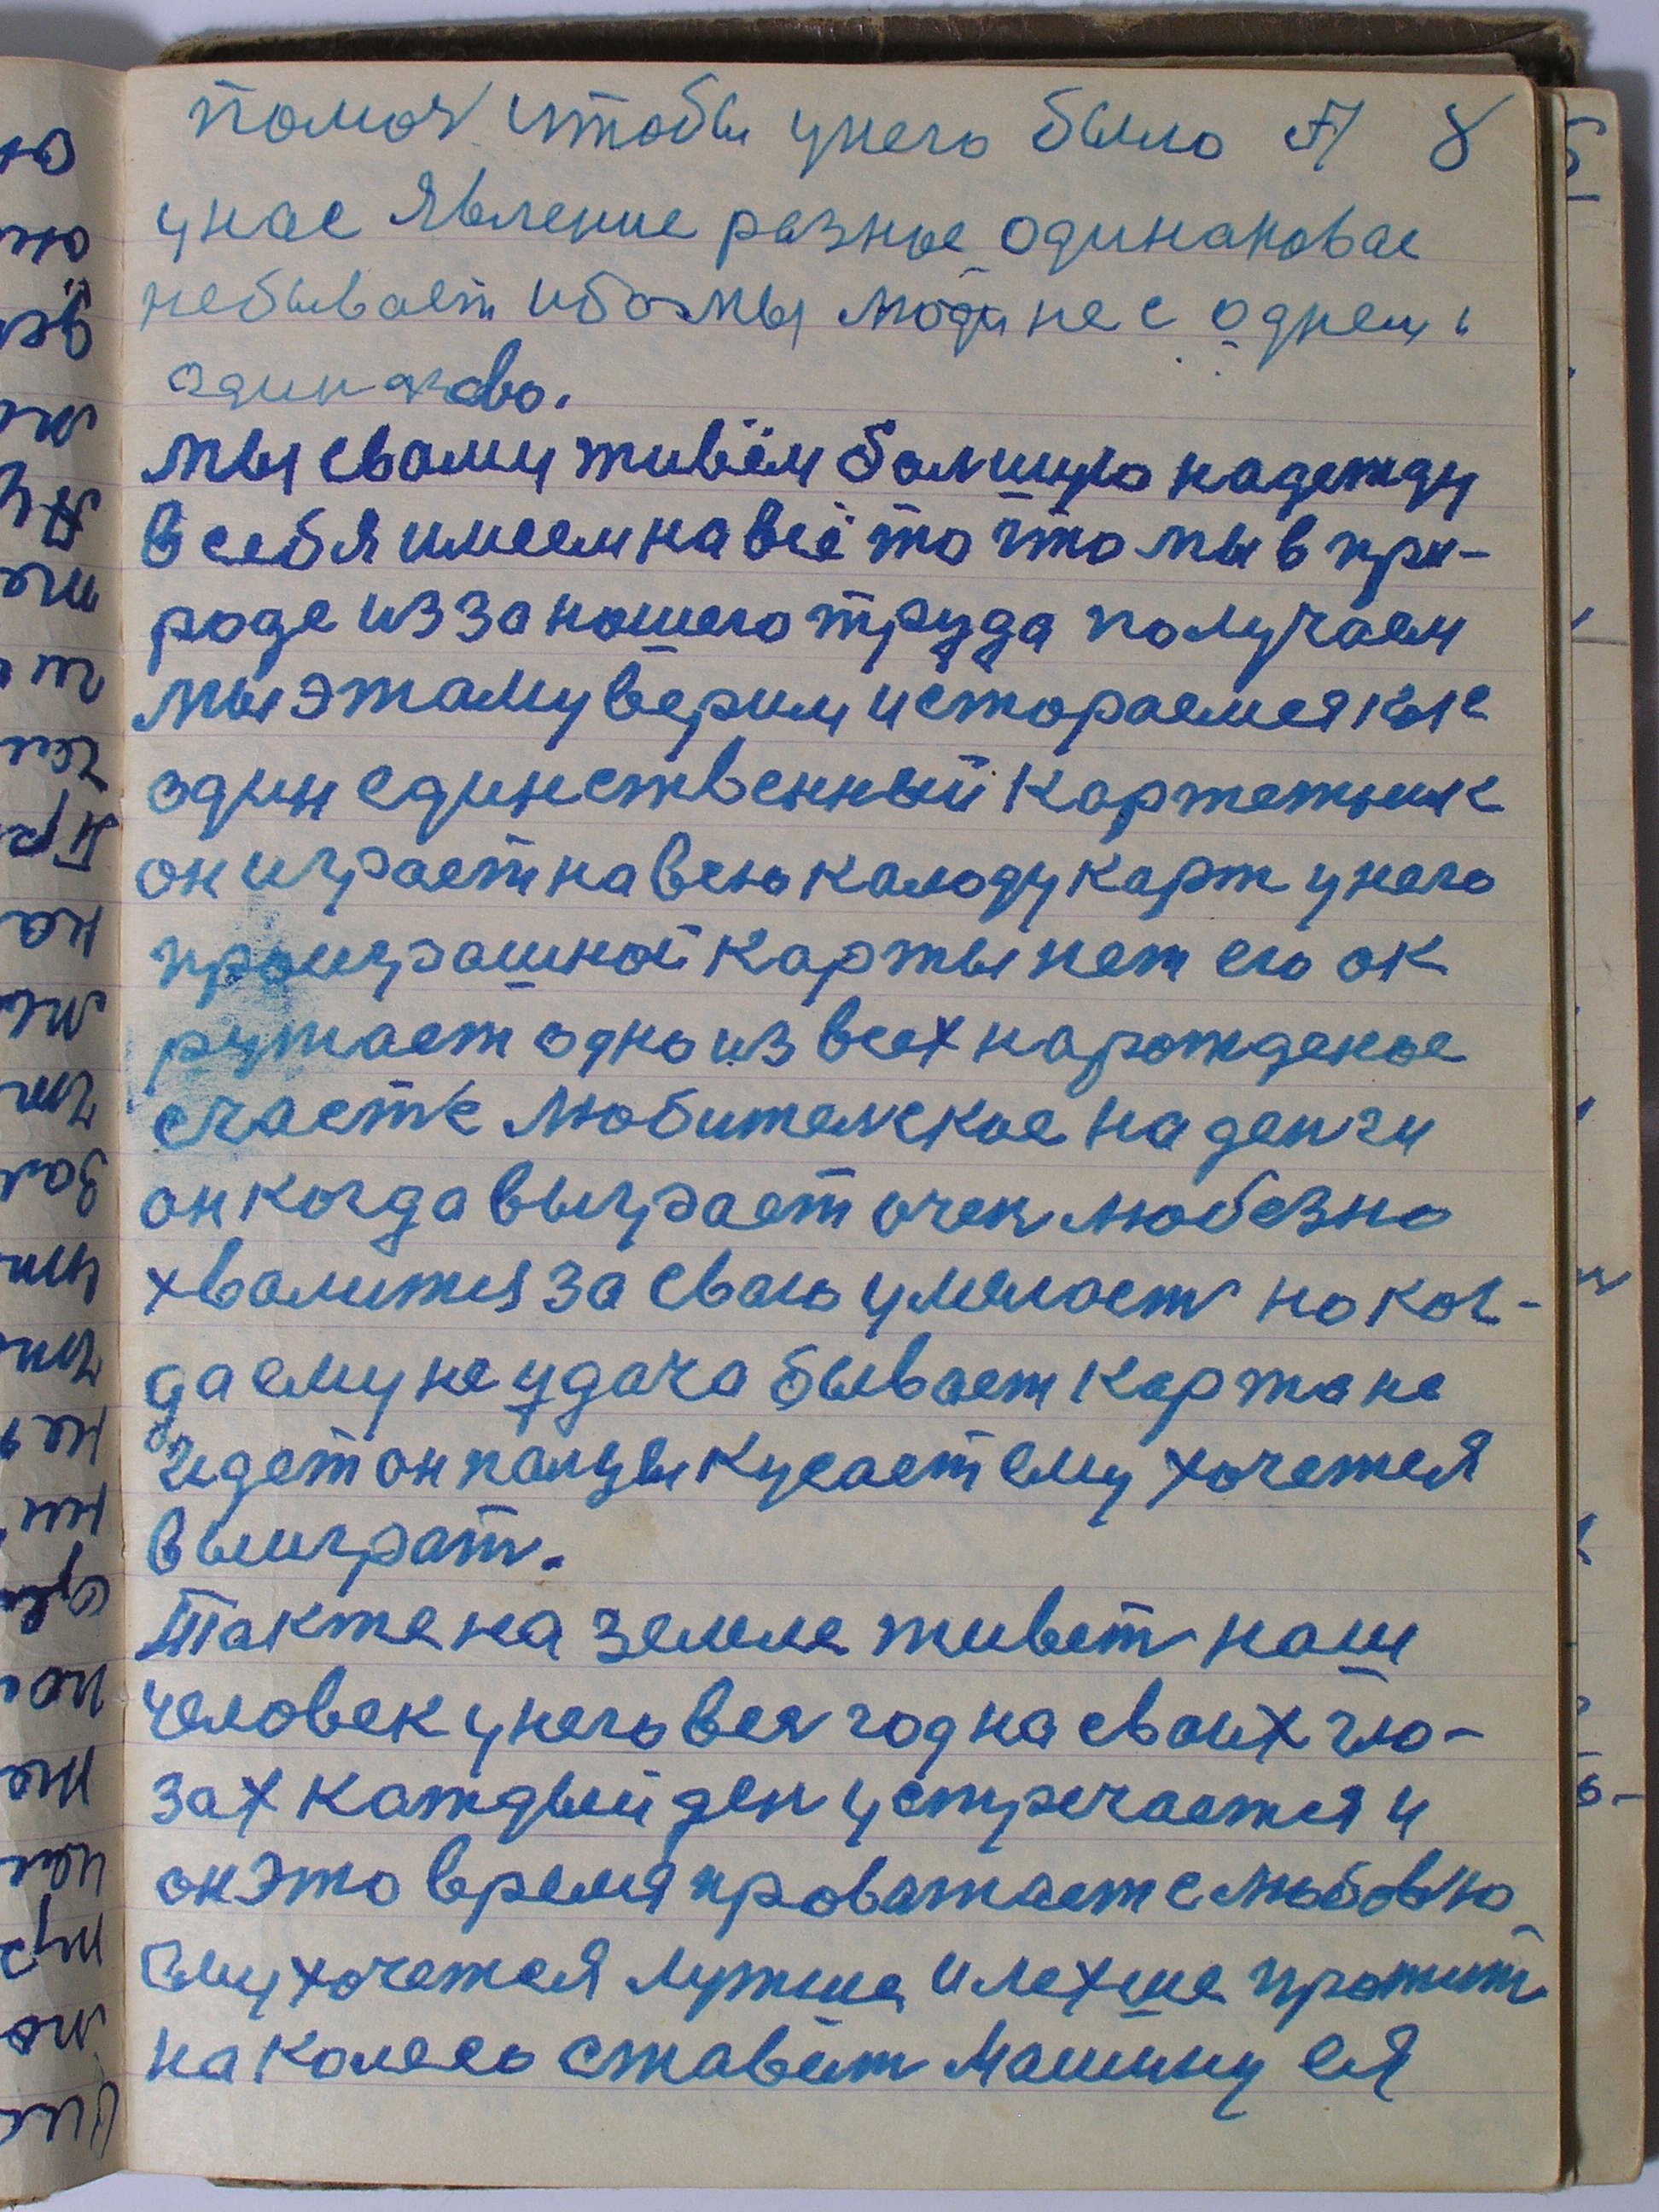 помоч чтобы унего было А 8
унас явление разное одинаковае
небывает ибо мы люди не с однем и
одинаково.
мы свами живём болшую надежду
в себя имеем на всё то что мы в при-
роде из за нашего труда получаем
мы этаму верим и стораемся как
один единственный картежник
он играет на всю калоду карт унего
проиграшной карты нет его ок
ружает одно из всех нарожденое
счастье любителское на денги
он когда выиграет очен любезно
хвалится за сваю умелост но ког-
да ему не удача бывает карта не
идет он палцы кусает ему хочется
выиграт.
Так же на земле живет наш
человек унего вся год на своих гла-
зах каждый ден устречается и
он это время проважает с любовю
ему хочется лутше и лехше прожит
на колесо ставит машину ся